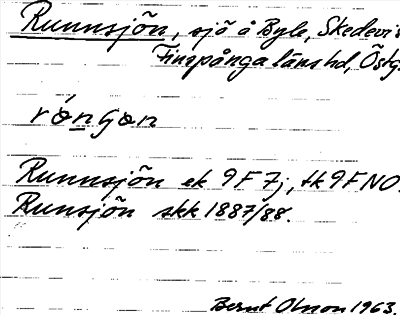 Runnsjön, sjö å Byle, Skedevi s
Finspånga läns hd, Östg.
Runnsjön ek 9F7j, tk 9F NO.
Runsjön skk 1887/88.
Bernt Olsson 1963.